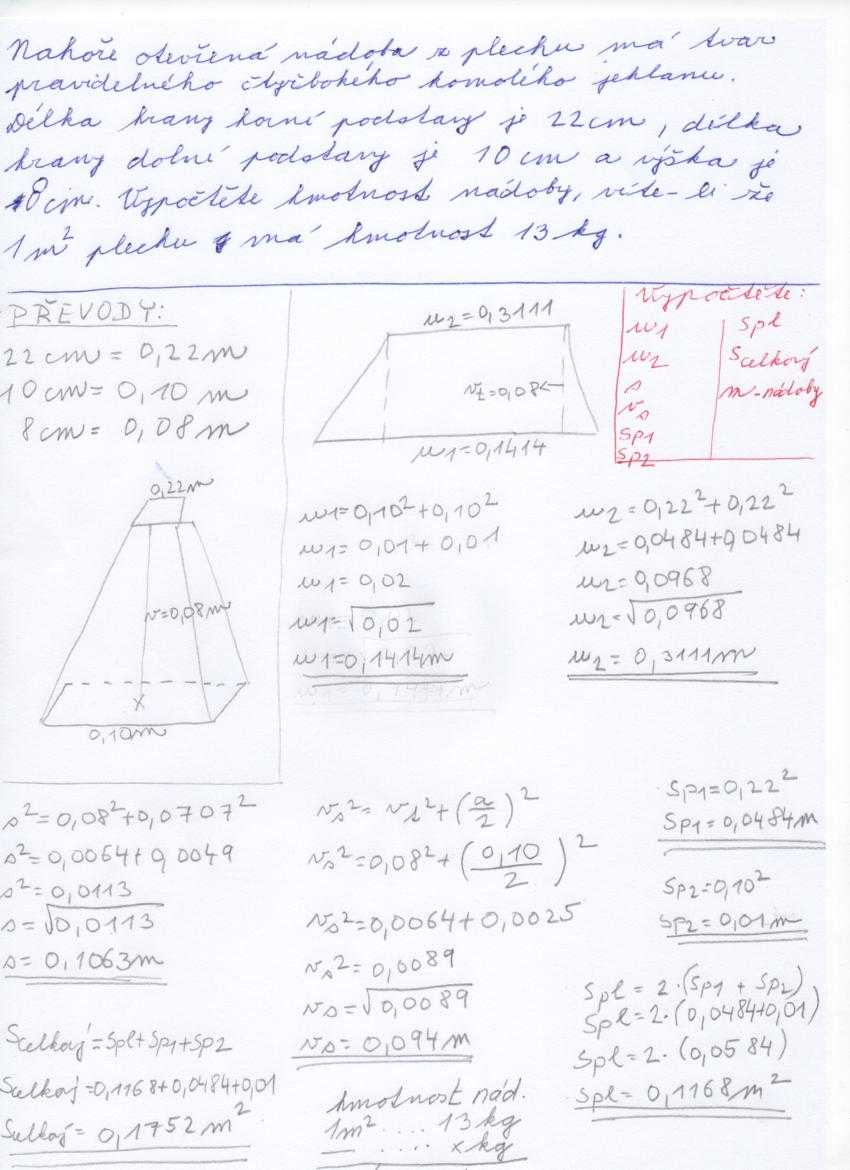 Nahoře otevřená nádoba z plechu má tvar
pravidelného čtyřbokého komolého jehlanu.
Délka hrany horní podstavy je 22cm, délka
hrany dolní podstavy je 10 cm a výška je
8 cm. Vypočtěte hmotnost nádoby, víte-li že
1m² plechu má hmotnost 13 kg.
PŘEVODY:
22 cm = 0,22m
10 cm = 0,10 m
8 cm = 0,08 m
0,22m
v=0,08m
x
0,10m
u2=0,3111
vt=0,08
u1=0,1414
Vypočtěte:
u1
u2
s
vs
Sp1
Sp2
Spl
Scelkový
m-nádoby
u1=0,10²+0,10²
u1=0,01+0,01
u1=0,02
u1=√0,02
u1=0,1414m
u2=0,22²+0,22²
u2=0,0484+0,0484
u2=0,0968
u2=√0,0968
u2=0,3111m
s²=0,08²+0,0707²
s²=0,0064+0,0049
s²=0,0113
s=√0,0113
s=0,1063m
vs²=vt²+(a/2)²
vs²=0,08²+(0,10/2)²
vs²=0,0064+0,0025
vs²=0,0089
vs=√0,0089
vs=0,094m
Sp1=0,22²
Sp1=0,0484m
Sp2=0,10²
Sp2=0,01m
Spl=2·(Sp1+Sp2)
Spl=2·(0,0484+0,01)
Spl=2·(0,0584)
Spl=0,1168m²
Scelkový=Spl+Sp1+Sp2
Scelkový=0,1168+0,0484+0,01
Scelkový=0,1752m²
hmotnost nád.
1m² .... 13kg
.... x kg